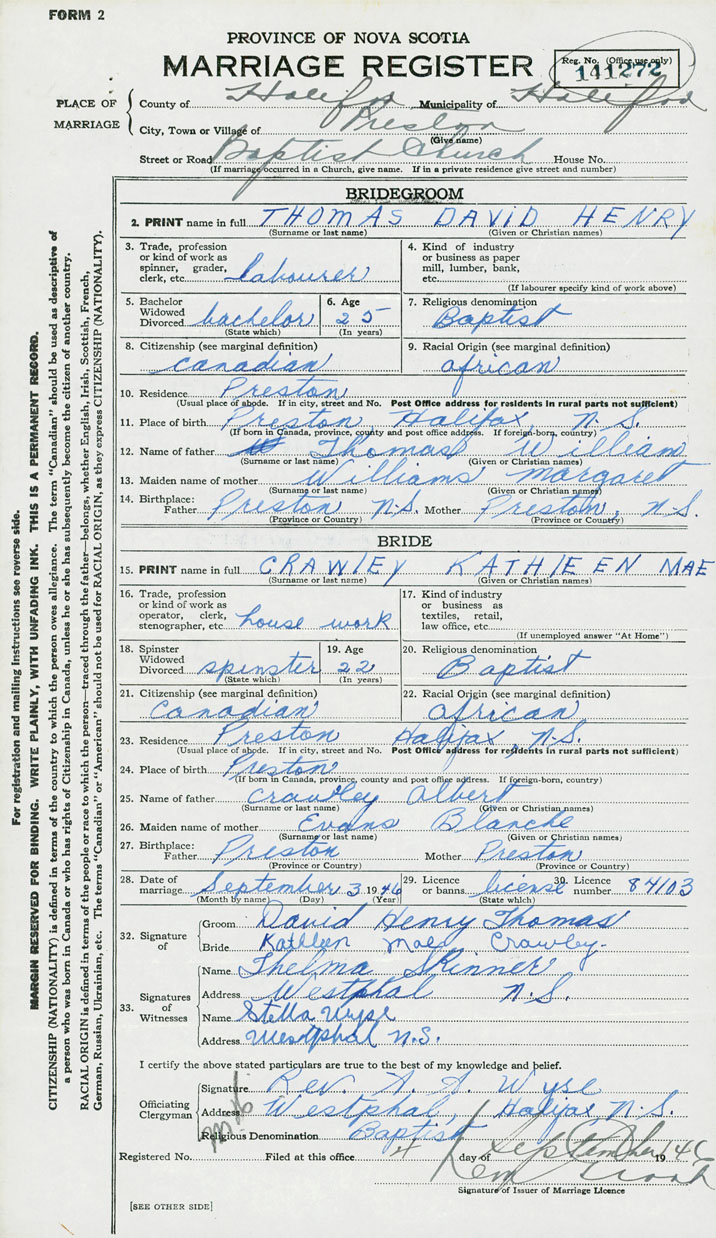 FORM 2
PROVINCE OF NOVA SCOTIA
MARRIAGE REGISTER
Reg. No. (Office use only)
141272
PLACE OF MARRIAGE
County of Halifax Municipality of Halifax
City, Town or Village of Preston
(Give name)
Street or Road Baptist Church House No.
(If marriage occurred in a Church, give name. If in a private residence give street and number)
BRIDEGROOM
2. PRINT name in full THOMAS DAVID HENRY
(Surname or last name) (Given or Christian names)
3. Trade, profession or kind of work as spinner, grader, clerk, etc. labourer
4. Kind of industry or business as paper mill, lumber, bank, etc.
(If labourer specify kind of work above)
5. Bachelor Widowed Divorced bachelor
(State which)
6. Age 25
(In years)
7. Religious denomination Baptist
8. Citizenship (see marginal definition) canadian
9. Racial Origin (see marginal definition) african
10. Residence Preston
(Usual place of abode. If in city, street and No. Post Office address for residents in rural parts not sufficient)
11. Place of birth Preston Halifax, N.S.
(If born in Canada, province, county and post office address. If foreign-born, country)
12. Name of father Thomas William
(Surname or last name) (Given or Christian names)
13. Maiden name of mother Williams Margaret
(Surname or last name) (Given or Christian names)
14. Birthplace: Father Preston N.S. Mother Preston, N.S.
(Province or Country) (Province or Country)
BRIDE
15. PRINT name in full CRAWLEY KATHLEEN MAE
(Surname or last name) (Given or Christian names)
16. Trade, profession or kind of work as operator, clerk, stenographer, etc. house work
17. Kind of industry or business as textiles, retail, law office, etc.
(If unemployed answer "At Home")
18. Spinster Widowed Divorced spinster
(State which)
19. Age 22
(In years)
20. Religious denomination Baptist
21. Citizenship (see marginal definition) Canadian
22. Racial Origin (see marginal definition) african
23. Residence Preston Halifax, N.S.
(Usual place of abode. If in city, street and No. Post Office address for residents in rural parts not sufficient)
24. Place of birth Preston
(If born in Canada, province, county and post office address. If foreign-born, country)
25. Name of father Crawley Albert
(Surname or last name) (Given or Christian names)
26. Maiden name of mother Evans Blanche
(Surname or last name) (Given or Christian names)
27. Birthplace: Father Preston Mother Preston
(Province or Country) (Province or Country)
28. Date of marriage September 3 1946
(Month by name) (Day) (Year)
29. Licence or banns. license
(State which)
30. Licence number 84103
32. Signature of
Groom David Henry Thomas
Bride Kathleen Mae Crawley
33. Signatures of Witnesses
Name Thelma Skinner
Address Westphal N.S.
Name Stella Wyse
Address Westphal N.S.
I certify the above stated particulars are true to the best of my knowledge and belief.
Officiating Clergyman
Signature Rev. A. A. Wyse
Address Westphal, Halifax, N.S.
Religious Denomination Baptist
Registered No. Filed at this office 4 day of September 1946
Signature of Issuer of Marriage Licence
[SEE OTHER SIDE]
For registration and mailing instructions see reverse side.
MARGIN RESERVED FOR BINDING. WRITE PLAINLY, WITH UNFADING INK. THIS IS A PERMANENT RECORD.
CITIZENSHIP (NATIONALITY) is defined in terms of the country to which the person owes allegiance. The term "Canadian" should be used as descriptive of
a person who was born in Canada or who has rights of Citizenship in Canada, unless he or she has subsequently become the citizen of another country.
RACIAL ORIGIN is defined in terms of the people or race to which the person—traced through the father—belongs, whether English, Irish, Scottish, French,
German, Russian, Ukrainian, etc. The terms "Canadian" or "American" should not be used for RACIAL ORIGIN, as they express CITIZENSHIP (NATIONALITY).